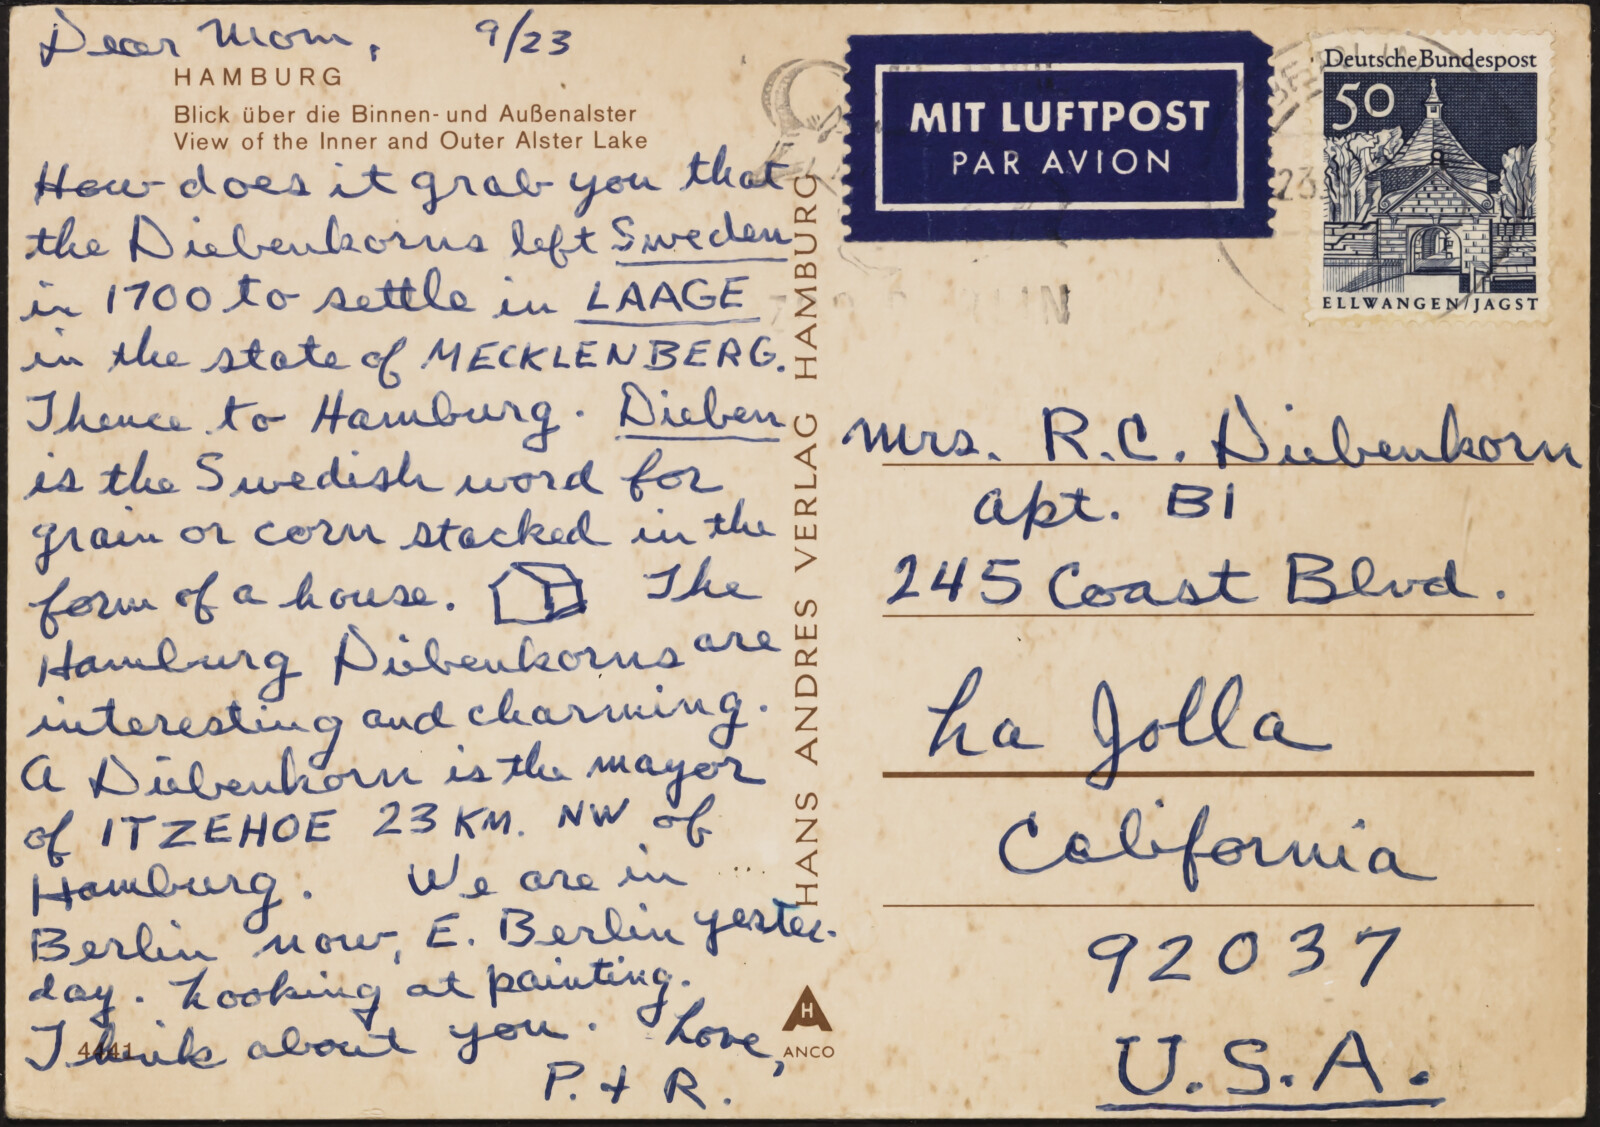 Dear Mom, 9/23
HAMBURG
Blick über die Binnen- und Außenalster
View of the Inner and Outer Alster Lake
How does it grab you that
the Diebenkorns left Sweden
in 1700 to settle in LAAGE
in the state of MECKLENBERG.
Thence to Hamburg. Dieben
is the Swedish word for
grain or corn stacked in the
form of a house. The
Hamburg Diebenkorns are
interesting and charming.
A Diebenkorn is the mayor
of ITZEHOE 23 KM. NW of
Hamburg. We are in
Berlin now, E. Berlin yester-
day. Looking at painting.
Think about you. Love,
P. + R.
4441
HANS ANDRES VERLAG HAMBURG
H
ANCO
MIT LUFTPOST
PAR AVION
Deutsche Bundespost
50
ELLWANGEN/JAGST
BERLIN
23
Mrs. R.C. Diebenkorn
Apt. B1
245 Coast Blvd.
La Jolla
California
92037
U.S.A.